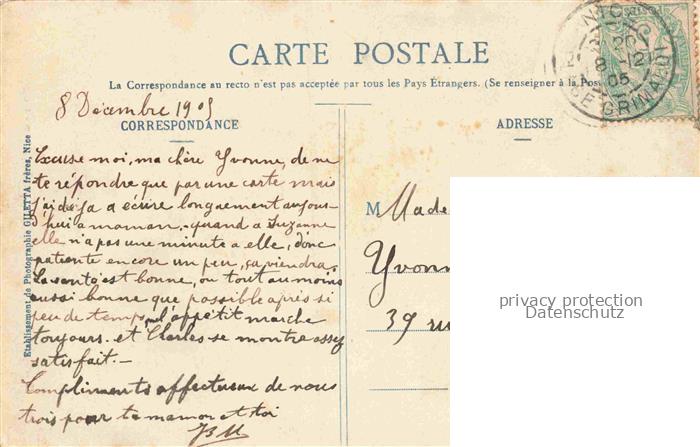 CARTE POSTALE
La Correspondance au recto n'est pas acceptée par tous les Pays Étrangers. (Se renseigner à la Pos
8 Décembre 1905
CORRESPONDANCE
Excuse moi, ma chère Yvonne, de ne
te répondre que par une carte mais
j'ai deja a écrire longuement aujour
d'hui a maman. quand a Suzanne
elle n'a pas une minute a elle, donc
patiente encore un peu, ça viendra.
La santé est bonne, ou tout au moins
aussi bonne que possible après si
peu de temps, l'appétit marche
toujours. et Charles se montre assez
satisfait.-
Compliments affectueux de nous
trois pour ta maman et toi
JBM
ADRESSE
M Made
Yvonn
39 ru
NICE
8 -12
05
GRIMALDI
Etablissement de Photographie GILETTA frères, Nice
privacy protection
Datenschutz